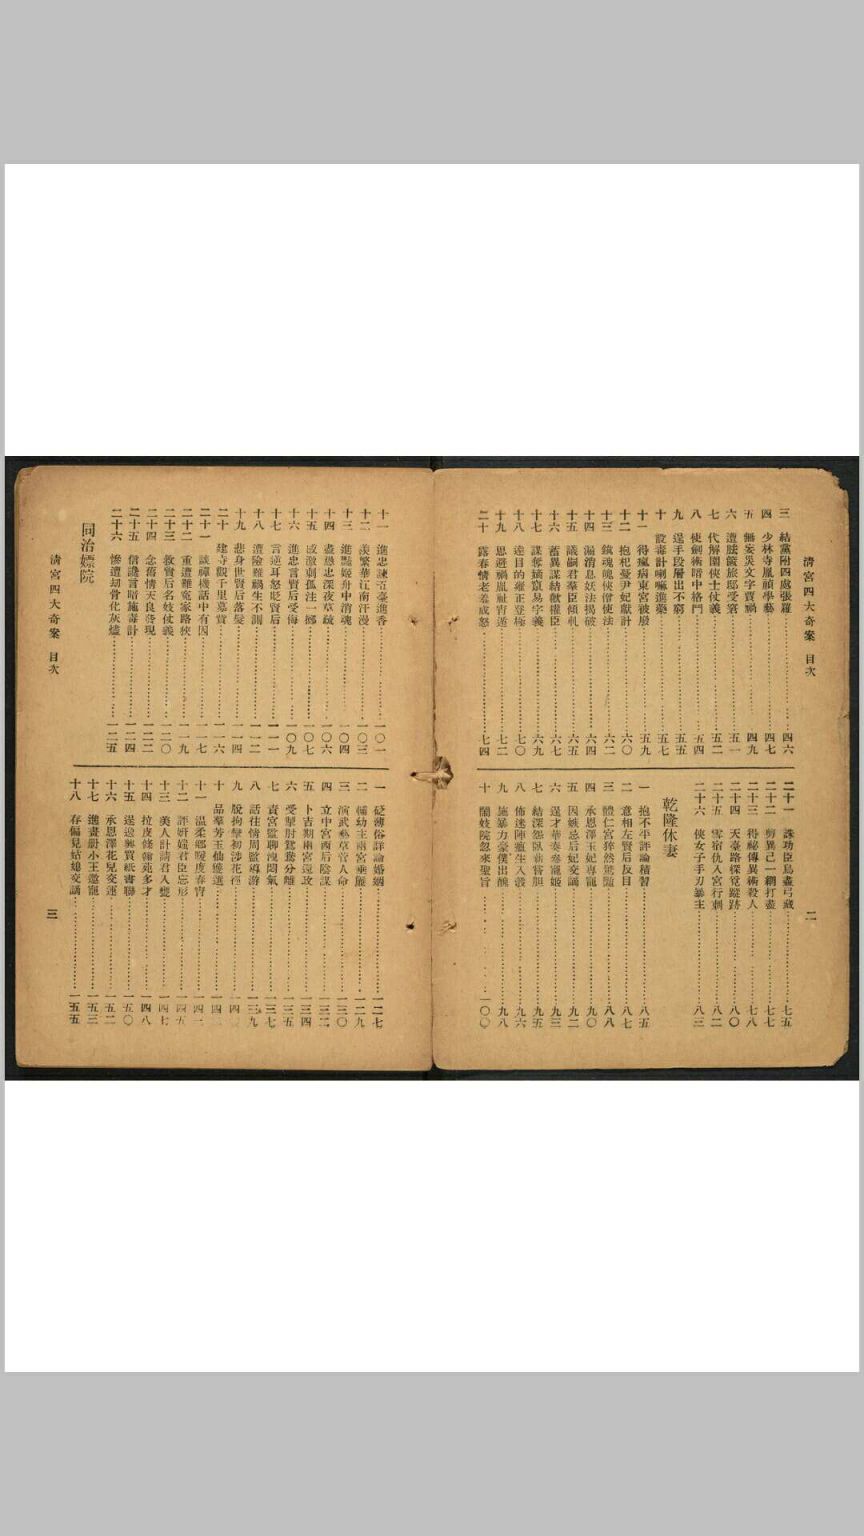 清宮四大奇案　目次
二
三　結黨附四處張羅……四六
四　少林寺胤禎學藝……四七
五　無妄災文字賈禍……四九
六　遭胠篋旅邸受窘……五一
七　代解圍俠士仗義……五二
八　使劍術暗中格鬥……五四
九　逞手段層出不窮……五五
十　設毒計喇嘛進藥……五七
十一　得瘋病東宮被廢……五九
十二　抱杞憂尹妃獻計……六〇
十三　鎮魂魄俠僧使法……六二
十四　漏消息妖法揭破……六四
十五　議嗣君羣臣傾軋……六五
十六　蓄異謀結歡權臣……六六
十七　謀奪嫡竄易字義……六九
十八　達目的雍正登極……七〇
十九　思避禍胤祉宵遁……七二
二十　露春情老羞成怒……七四
二十一　誅功臣鳥盡弓藏……七五
二十二　剪異己一網打盡……七七
二十三　得祕傳異術殺人……七八
二十四　天臺路探覓蹤跡……八〇
二十五　雪宿仇入宮行刺……八二
二十六　俠女子手刃暴主……八三
乾隆休妻
一　抱不平評論積習……八五
二　意相左賢后反目……八七
三　體仁宮猝然驚豔……八八
四　承恩澤玉妃專寵……九〇
五　因嫉忌后妃交謫……九二
六　逞才華奏參寵姬……九三
七　結深怨臥薪嘗胆……九五
八　佈迷陣蠱生入彀……九六
九　施暴力豪僕出醜……九八
十　鬧妓院忽來聖旨……一〇〇
十一　進忠諫五臺進香……一〇一
十二　羨繁華江南汗漫……一〇三
十三　進豔姬舟中消魂……一〇四
十四　盡愚忠深夜草疏……一〇六
十五　成激刺孤注一擲……一〇七
十六　進忠言賢后受侮……一〇九
十七　言逆耳怒貶賢后……一一一
十八　遭險難禍生不測……一一二
十九　悲身世賢后落髮……一一四
二十　建寺觀千里募貲……一一六
二十一　談禪機話中有因……一一七
二十二　重遭難冤家路狹……一一九
二十三　救賢后名妓仗義……一二〇
二十四　念舊情天良發現……一二二
二十五　信讒言暗施毒計……一二四
二十六　慘遭刧骨化灰燼……一二五
同治嫖院
一　砭薄俗詳論婚姻……一二七
二　輔幼主兩宮垂簾……一二九
三　演武藝草菅人命……一三〇
四　立中宮西后陰謀……一三二
五　卜吉期兩宮還政……一三四
六　受掣肘鴛鴦分離……一三五
七　責宮監聊洩悶氣……一三七
八　話往情周監導游……一三九
九　脫拘攣初涉花徑……一四
十　品羣芳玉仙雙選……一四
十一　溫柔鄉暖度春宵……一四
十二　評妍媸君臣忘形……一四五
十三　美人計請君入甕……一四七
十四　拉皮條翰苑多才……一四八
十五　逞逸興買紙書聯……一五〇
十六　承恩澤花兒交運……一五二
十七　進畫册小王邀寵……一五三
十八　春偏見姑媳交謫……一五五
清宮四大奇案　目次
三